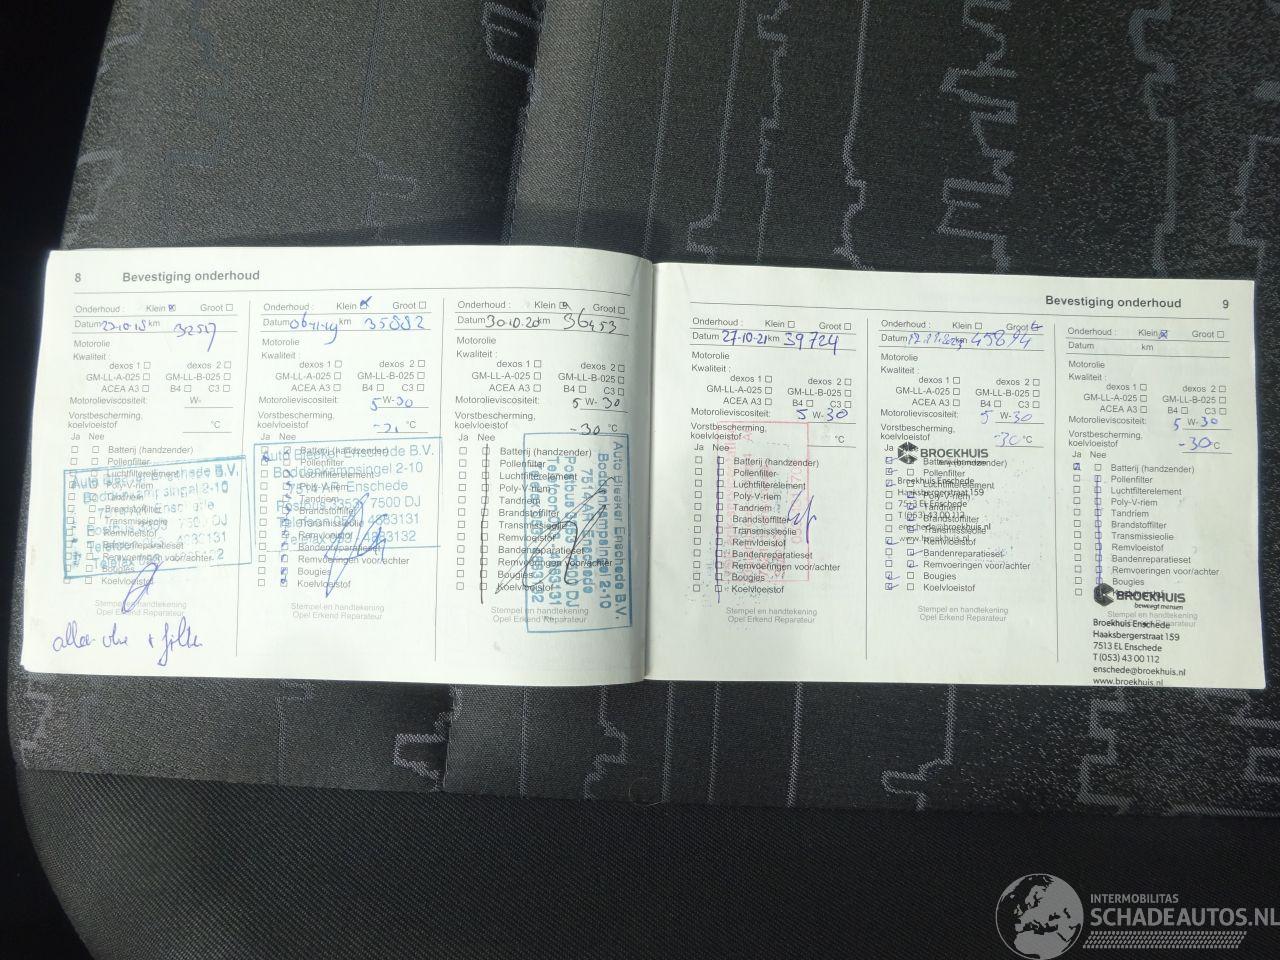 8 Bevestiging onderhoud
Onderhoud : Klein Groot
Datum 23-10-18 km 32517
Motorolie
Kwaliteit :
dexos 1 dexos 2
GM-LL-A-025 GM-LL-B-025
ACEA A3 B4 C3
Motorolieviscositeit: W-
Vorstbescherming,
koelvloeistof °C
Ja Nee
Batterij (handzender)
Pollenfilter
Luchtfilterelement
Poly-V-riem
Tandriem
Brandstoffilter
Transmissieolie
Remvloeistof
Bandenreparatieset
Remvoeringen voor/achter
Bougies
Koelvloeistof
Stempel en handtekening
Opel Erkend Reparateur
Onderhoud : Klein Groot
Datum km 35882
Motorolie
Kwaliteit :
dexos 1 dexos 2
GM-LL-A-025 GM-LL-B-025
ACEA A3 B4 C3
Motorolieviscositeit: 5 W-30
Vorstbescherming,
koelvloeistof °C
Ja Nee
Batterij (handzender)
Pollenfilter
Luchtfilterelement
Poly-V-riem
Tandriem
Brandstoffilter
Transmissieolie
Remvloeistof
Bandenreparatieset
Remvoeringen voor/achter
Bougies
Koelvloeistof
Auto Bleeker Enschede B.V.
Boddenkampsingel 2-10
7514 AR Enschede
7500 DJ
4883131
4883132
Stempel en handtekening
Opel Erkend Reparateur
Onderhoud : Klein Groot
Datum 30-10-20 km 36453
Motorolie
Kwaliteit :
dexos 1 dexos 2
GM-LL-A-025 GM-LL-B-025
ACEA A3 B4 C3
Motorolieviscositeit: 5 W-30
Vorstbescherming,
koelvloeistof -30 °C
Ja Nee
Batterij (handzender)
Pollenfilter
Luchtfilterelement
Poly-V-riem
Tandriem
Brandstoffilter
Transmissieolie
Remvloeistof
Bandenreparatieset
Remvoeringen voor/achter
Bougies
Koelvloeistof
Auto Bleeker Enschede B.V.
Boddenkampsingel 2-10
7514 AR Enschede
Stempel en handtekening
Opel Erkend Reparateur
Bevestiging onderhoud 9
Onderhoud : Klein Groot
Datum 27-10-21 km 39724
Motorolie
Kwaliteit :
dexos 1 dexos 2
GM-LL-A-025 GM-LL-B-025
ACEA A3 B4 C3
Motorolieviscositeit: 5 W-30
Vorstbescherming,
koelvloeistof °C
Ja Nee
Batterij (handzender)
Pollenfilter
Luchtfilterelement
Poly-V-riem
Tandriem
Brandstoffilter
Transmissieolie
Remvloeistof
Bandenreparatieset
Remvoeringen voor/achter
Bougies
Koelvloeistof
Stempel en handtekening
Opel Erkend Reparateur
Onderhoud : Klein Groot
Datum km 45894
Motorolie
Kwaliteit :
dexos 1 dexos 2
GM-LL-A-025 GM-LL-B-025
ACEA A3 B4 C3
Motorolieviscositeit: 5 W-30
Vorstbescherming,
koelvloeistof -30 °C
Ja Nee
BROEKHUIS
Batterij (handzender)
Pollenfilter
Luchtfilterelement
Broekhuis Enschede
Haaksbergerstraat 159
7513 EL Enschede
T (053) 43 00 112
enschede@broekhuis.nl
www.broekhuis.nl
Poly-V-riem
Tandriem
Brandstoffilter
Transmissieolie
Remvloeistof
Bandenreparatieset
Remvoeringen voor/achter
Bougies
Koelvloeistof
Stempel en handtekening
Opel Erkend Reparateur
Onderhoud : Klein Groot
Datum km
Motorolie
Kwaliteit :
dexos 1 dexos 2
GM-LL-A-025 GM-LL-B-025
ACEA A3 B4 C3
Motorolieviscositeit: 5 W-30
Vorstbescherming,
koelvloeistof -30°C
Ja Nee
Batterij (handzender)
Pollenfilter
Luchtfilterelement
Poly-V-riem
Tandriem
Brandstoffilter
Transmissieolie
Remvloeistof
Bandenreparatieset
Remvoeringen voor/achter
Bougies
Koelvloeistof
BROEKHUIS
beweegt mensen
Broekhuis Enschede
Haaksbergerstraat 159
7513 EL Enschede
T (053) 43 00 112
enschede@broekhuis.nl
www.broekhuis.nl
INTERMOBILITAS
SCHADEAUTOS.NL